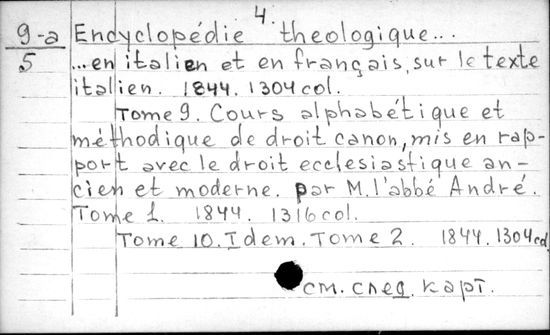 4.
9-a Encyclopédie theologique...
5 ...en italien et en français, sur le texte
italien. 1844. 1304 col.
Tome 9. Cours alphabétique et
méthodique de droit canon, mis en rap-
port avec le droit ecclesiastique an-
cien et moderne. par M. l'abbé André.
Tome 1. 1844. 1316 col.
Tome 10. Idem. Tome 2. 1844. 1304 col
см. след. карт.